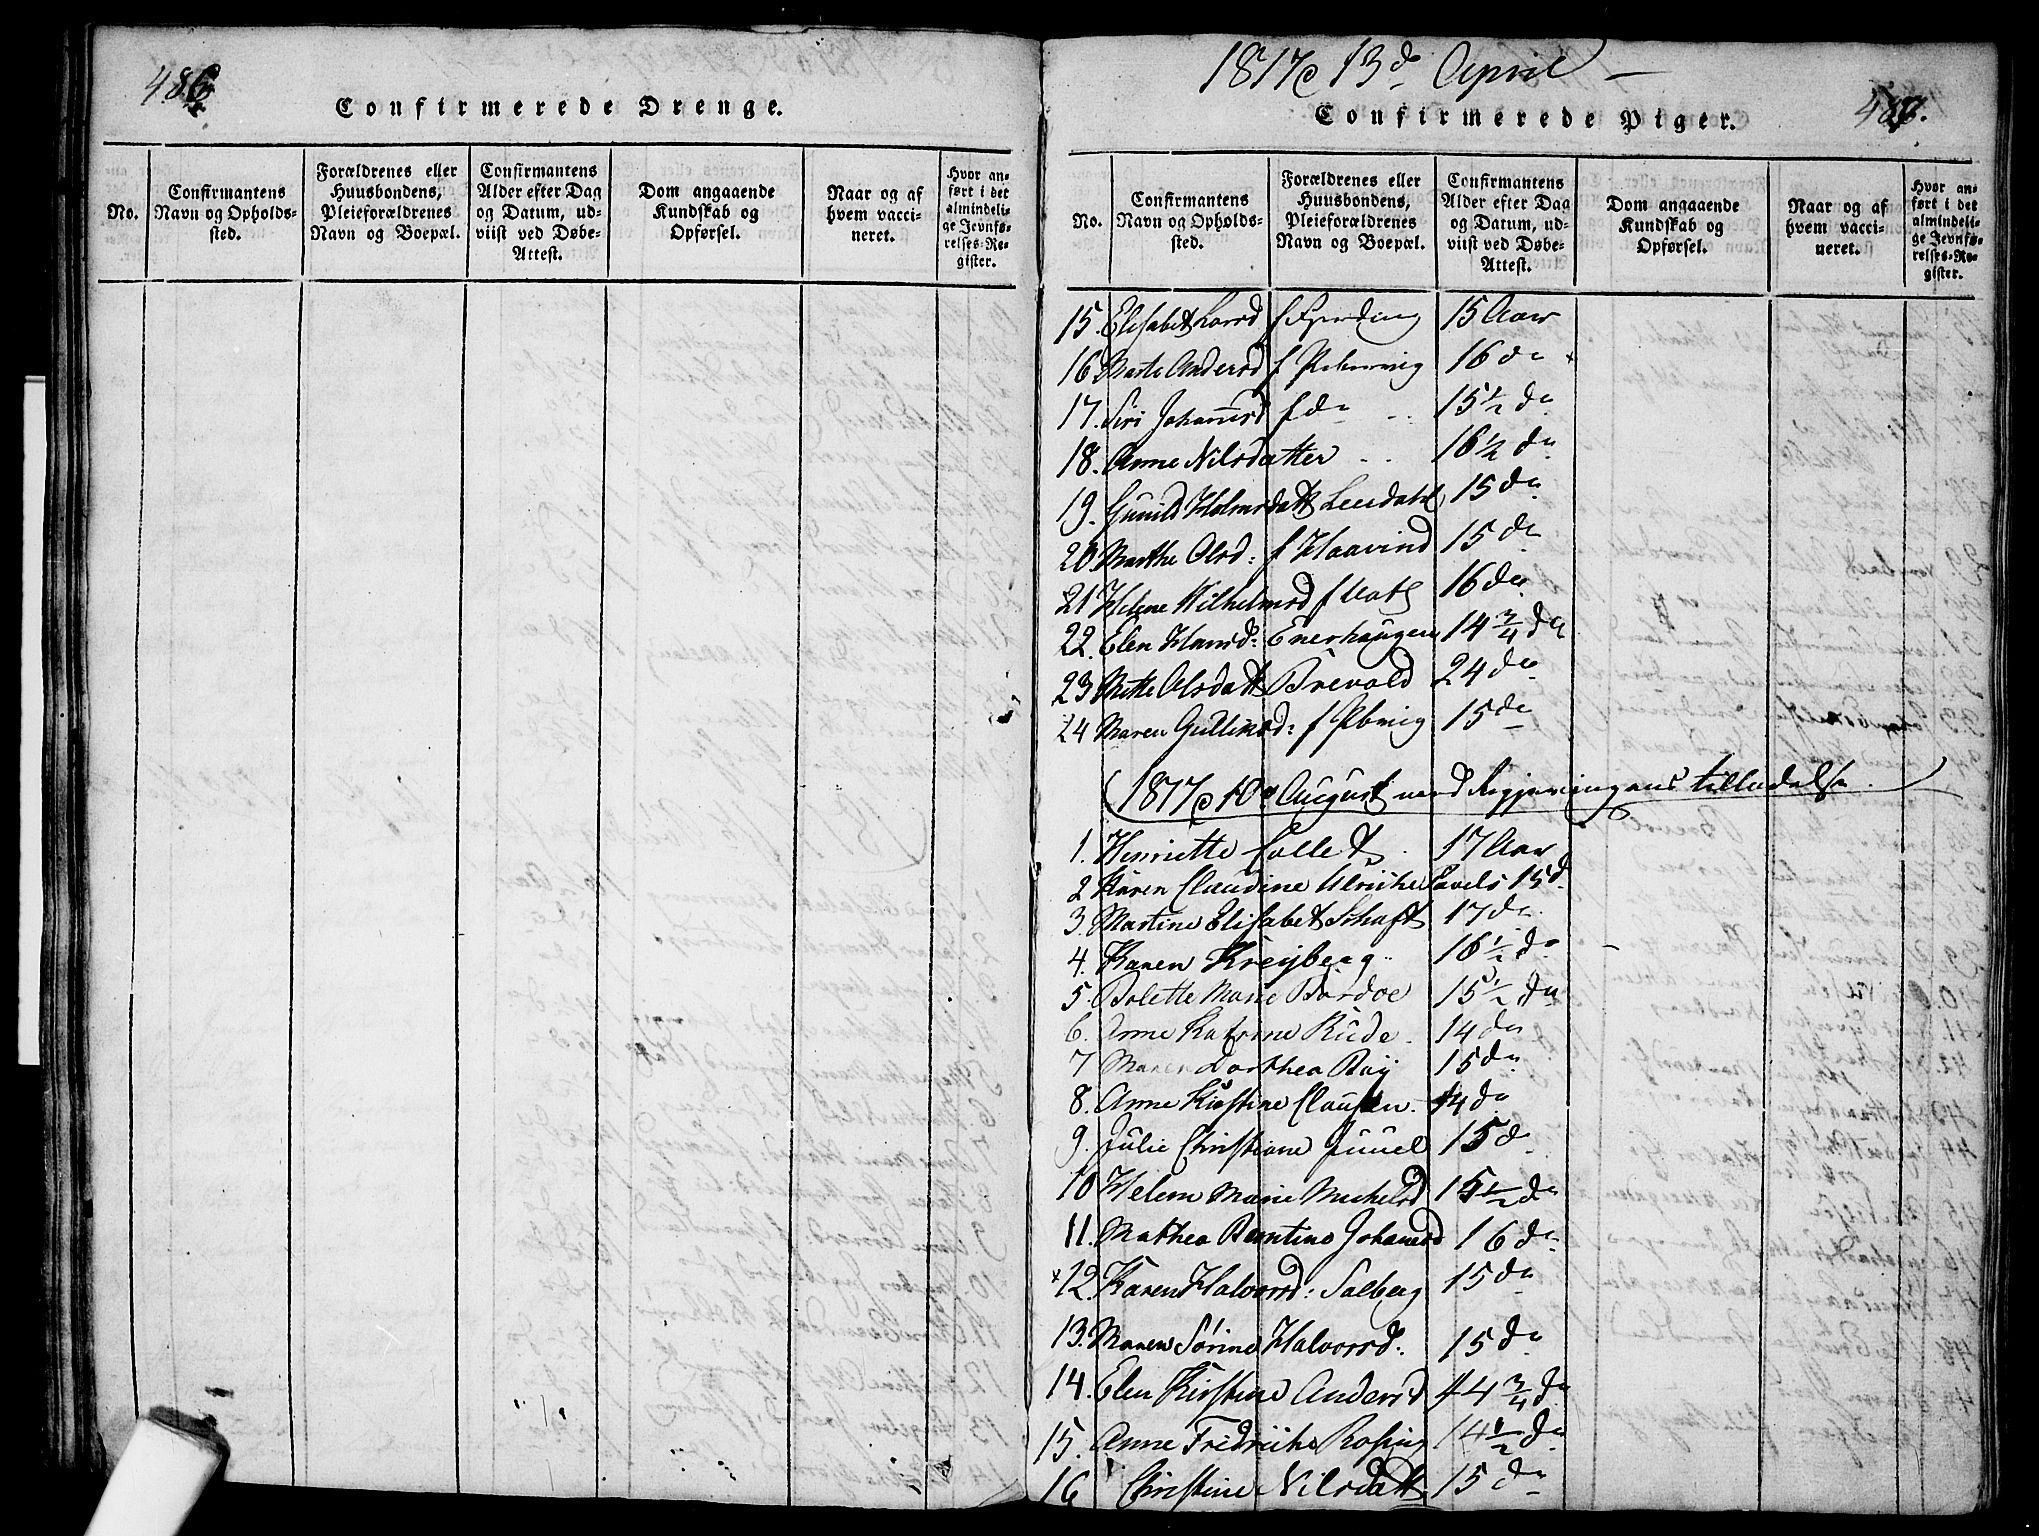 486
Confirmerede Drenge.
No.
Confirmantens Navn og Opholds-sted.
Forældrenes eller Huusbondens, Pleieforældrenes Navn og Boepæl.
Confirmantens Alder efter Dag og Datum, ud-viist ved Døbe-Attest.
Dom angaaende Kundskab og Opførsel.
Naar og af hvem vacci-neret.
Hvor an-ført i det almindeli-ge Jevnfø-relses-Re-gister.
1817 13de April
Confirmerede Piger.
487.
No.
Confirmantens Navn og Opholds-sted.
Forældrenes eller Huusbondens, Pleieforældrenes Navn og Boepæl.
Confirmantens Alder efter Dag og Datum, ud-viist ved Døbe-Attest.
Dom angaaende Kundskab og Opførsel.
Naar og af hvem vacci-neret.
Hvor an-ført i det almindeli-ge Jevnfø-relses-Re-gister.
15. Elisabet Larsd f Gjerding 15 Aar
16 Marte Andersd f 16 do
17. Siri Johannsd f do 15 1/2 do
18. Anne Nilsdatter 16 1/2 do
19. Gunild Holmsdatt Leerdahl 15 do
20 Marthe Olsd: f Haavind 15 do
21 Helene Wilhelmsd f 16 do
22. Elen Hansd: Enerhaugen 14 3/4 do
23 Mette Olsdatt Brevold 24 do
24 Maren Gulliksd: f 15 do
1817 10de August med Regjeringens tilladelse
1. Henriette Collett 17 Aar
2 Karen Claudine Ulriche Pavels 15 d
3. Martine Elisabet Schaft 17 do
4. Karen Kreyberg 16 1/2 do
5. Bolette Marie Bordoe 15 1/2 do
6. Anne Katrine Rude 14 do
7 Maren Dorthea Ruy 15 do
8. Anne Kirstine Clausen 14 do
9. Julie Christiane Juuel 15 do
10 Helene Marie Michelsd 15 1/2 do
11. Mathea Berntine Johanesd 16 do
×12. Karen Halvorsd: Solberg 15 do
13. Maren Sørine Halvorsd. 15 do
14. Elen Kirstine Andersd 14 3/4 do
15. Anne Fredrikke Rosing 14 1/2 do
16 Christine Nilsdatt 15 do